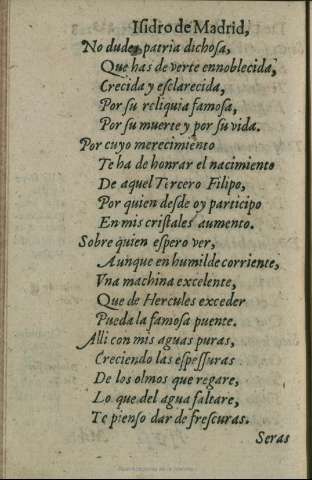 Isidro de Madrid,
No dudes patria dichosa,
Que has de verte ennoblecida,
Crecida y esclarecida,
Por su reliquia famosa,
Por su muerte y por su vida.
Por cuyo merecimiento
Te ha de honrar el nacimiento
De aquel Tercero Filipo,
Por quien desde oy participo
En mis cristales aumento.
Sobre quien espero ver,
Aunque en humilde corriente,
Vna machina excelente,
Que de Hercules exceder
Pueda la famosa puente.
Alli con mis aguas puras,
Creciendo las espessuras
De los olmos que regare,
Lo que del agua faltare,
Te pienso dar de frescuras.
Seras